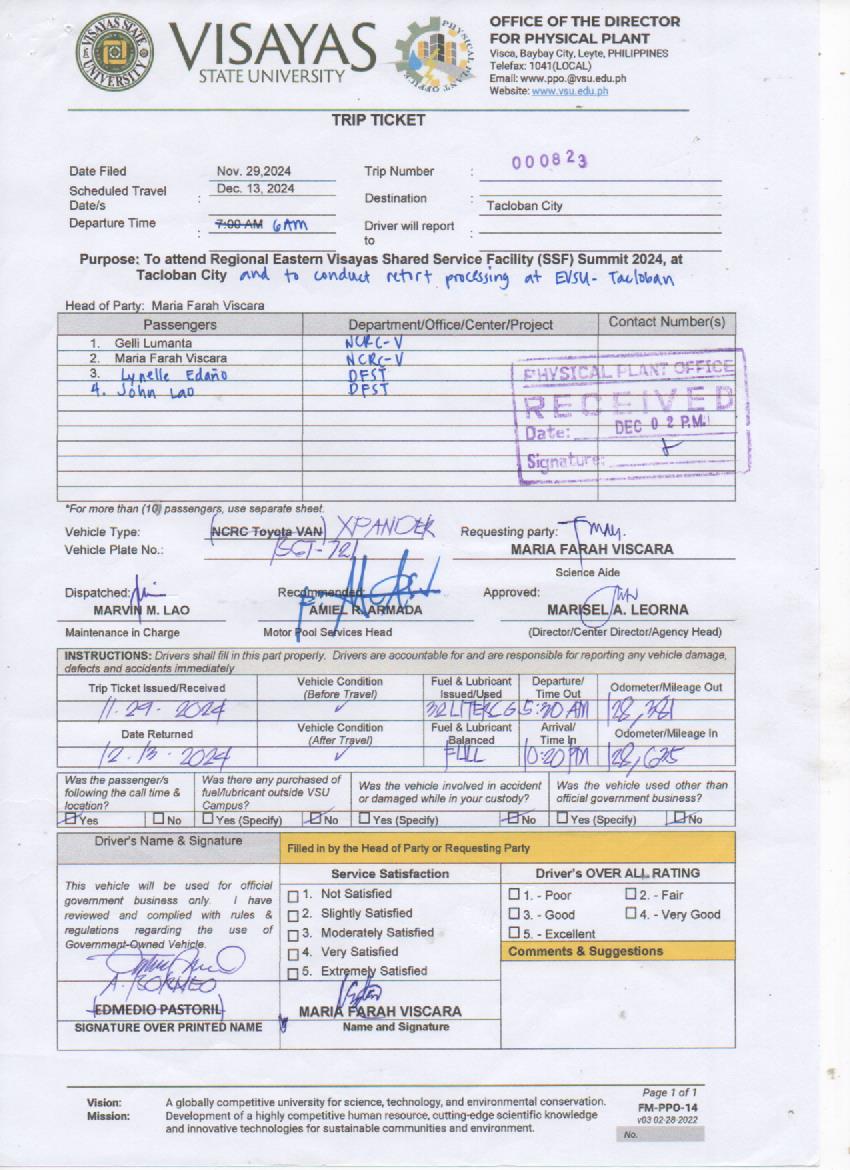 VISAYAS STATE UNIVERSITY
VISAYAS
STATE UNIVERSITY
PHYSICAL PLANT OFFICE
OFFICE OF THE DIRECTOR
FOR PHYSICAL PLANT
Visca, Baybay City, Leyte, PHILIPPINES
Telefax: 1041(LOCAL)
Email: www.ppo.@vsu.edu.ph
Website: www.vsu.edu.ph
TRIP TICKET
Date Filed Nov. 29,2024 Trip Number : 000823
Scheduled Travel Date/s : Dec. 13, 2024 Destination : Tacloban City
Departure Time : 7:00 AM 6AM Driver will report to :
Purpose: To attend Regional Eastern Visayas Shared Service Facility (SSF) Summit 2024, at
Tacloban City and to conduct retort processing at EVSU- Tacloban
Head of Party: Maria Farah Viscara
Passengers Department/Office/Center/Project Contact Number(s)
1. Gelli Lumanta NCRC-V
2. Maria Farah Viscara NCRC-V
3. Lynelle Edaño DFST
4. John Lao DFST
PHYSICAL PLANT OFFICE
RECEIVED
Date: DEC 02 P.M.
Signature:
*For more than (10) passengers, use separate sheet.
Vehicle Type: NCRC Toyota VAN XPANDER Requesting party:
Vehicle Plate No.: SGT-721 MARIA FARAH VISCARA
Science Aide
Dispatched: Recommended: Approved:
MARVIN M. LAO AMIEL R. ARMADA MARISEL A. LEORNA
Maintenance in Charge Motor Pool Services Head (Director/Center Director/Agency Head)
INSTRUCTIONS: Drivers shall fill in this part properly. Drivers are accountable for and are responsible for reporting any vehicle damage,
defects and accidents immediately
Trip Ticket Issued/Received Vehicle Condition (Before Travel) Fuel & Lubricant Issued/Used Departure/ Time Out Odometer/Mileage Out
11-29-2024 ✓ 5:30 AM 128,381
Date Returned Vehicle Condition (After Travel) Fuel & Lubricant Balanced Arrival/ Time In Odometer/Mileage In
12-13-2024 ✓ FULL 10:20 PM 128,625
Was the passenger/s following the call time & location? Was there any purchased of fuel/lubricant outside VSU Campus? Was the vehicle involved in accident or damaged while in your custody? Was the vehicle used other than official government business?
Yes No Yes (Specify) No Yes (Specify) No Yes (Specify) No
Driver's Name & Signature Filled in by the Head of Party or Requesting Party
This vehicle will be used for official
government business only. I have
reviewed and complied with rules &
regulations regarding the use of
Government-Owned Vehicle.
A. BORNEO
EDMEDIO PASTORIL
SIGNATURE OVER PRINTED NAME
Service Satisfaction
1. Not Satisfied
2. Slightly Satisfied
3. Moderately Satisfied
4. Very Satisfied
5. Extremely Satisfied
MARIA FARAH VISCARA
Name and Signature
Driver's OVER ALL RATING
1. - Poor 2. - Fair
3. - Good 4. - Very Good
5. - Excellent
Comments & Suggestions
Vision: A globally competitive university for science, technology, and environmental conservation.
Mission: Development of a highly competitive human resource, cutting-edge scientific knowledge
and innovative technologies for sustainable communities and environment.
Page 1 of 1
FM-PPO-14
v03 02-28-2022
No.